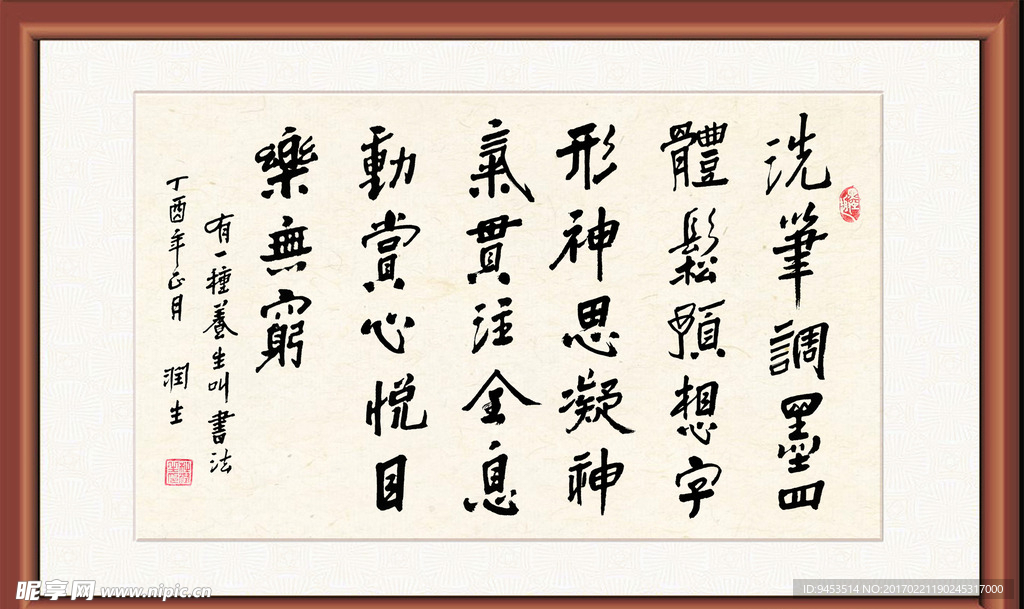 洗筆調墨四
體鬆預想字
形神思凝神
氣貫注全息
動賞心悅目
樂無窮
有一種養生叫書法
丁酉年正月 潤生
昵享网 www.nipic.cn
ID:9453514 NO:20170221190245317000